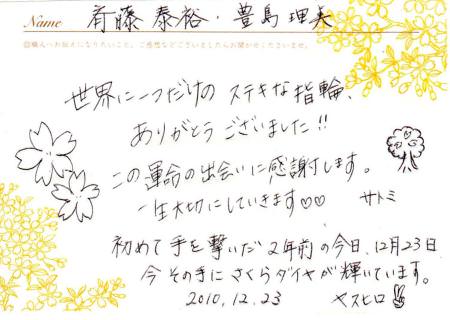 Name 斉藤 泰裕・豊島 理美
◎職人へお伝えになりたいこと、ご感想などございましたらお聞かせくださいませ。
世界に一つだけの ステキな指輪、
ありがとう ございました!!
この運命の出会いに感謝します。
一生大切にしていきます♡♡ サトミ
初めて手を繋いだ2年前の今日、12月23日
今 その手に さくらダイヤが輝いています。
2010.12.23 ヤスヒロ